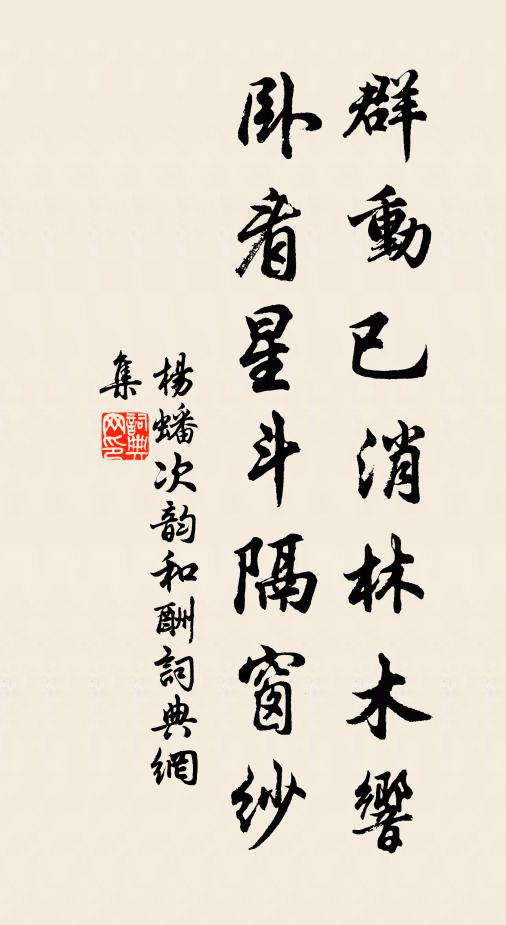 群動已消林木響
卧看星斗隔窗紗
楊蟠次韵和酬詞典網
集
詞典
网印